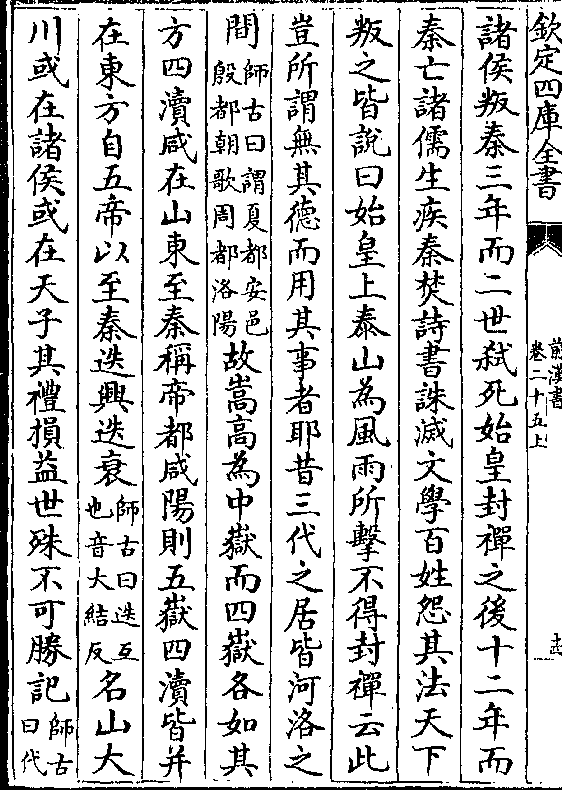 欽定四庫全書
前漢書
卷二十五上
諸侯叛秦三年而二世弑死始皇封禪之後十二年而
秦亡諸儒生疾秦焚詩書誅滅文學百姓怨其法天下
叛之皆說曰始皇上泰山為風雨所擊不得封禪云此
豈所謂無其德而用其事者耶昔三代之居皆河洛之
間師古曰謂夏都安邑殷都朝歌周都洛陽故嵩高為中嶽而四嶽各如其
方四瀆咸在山東至秦稱帝都咸陽則五嶽四瀆皆并
在東方自五帝以至秦迭興迭衰師古曰迭互也音大結反名山大
川或在諸侯或在天子其禮損益世殊不可勝記師古曰代